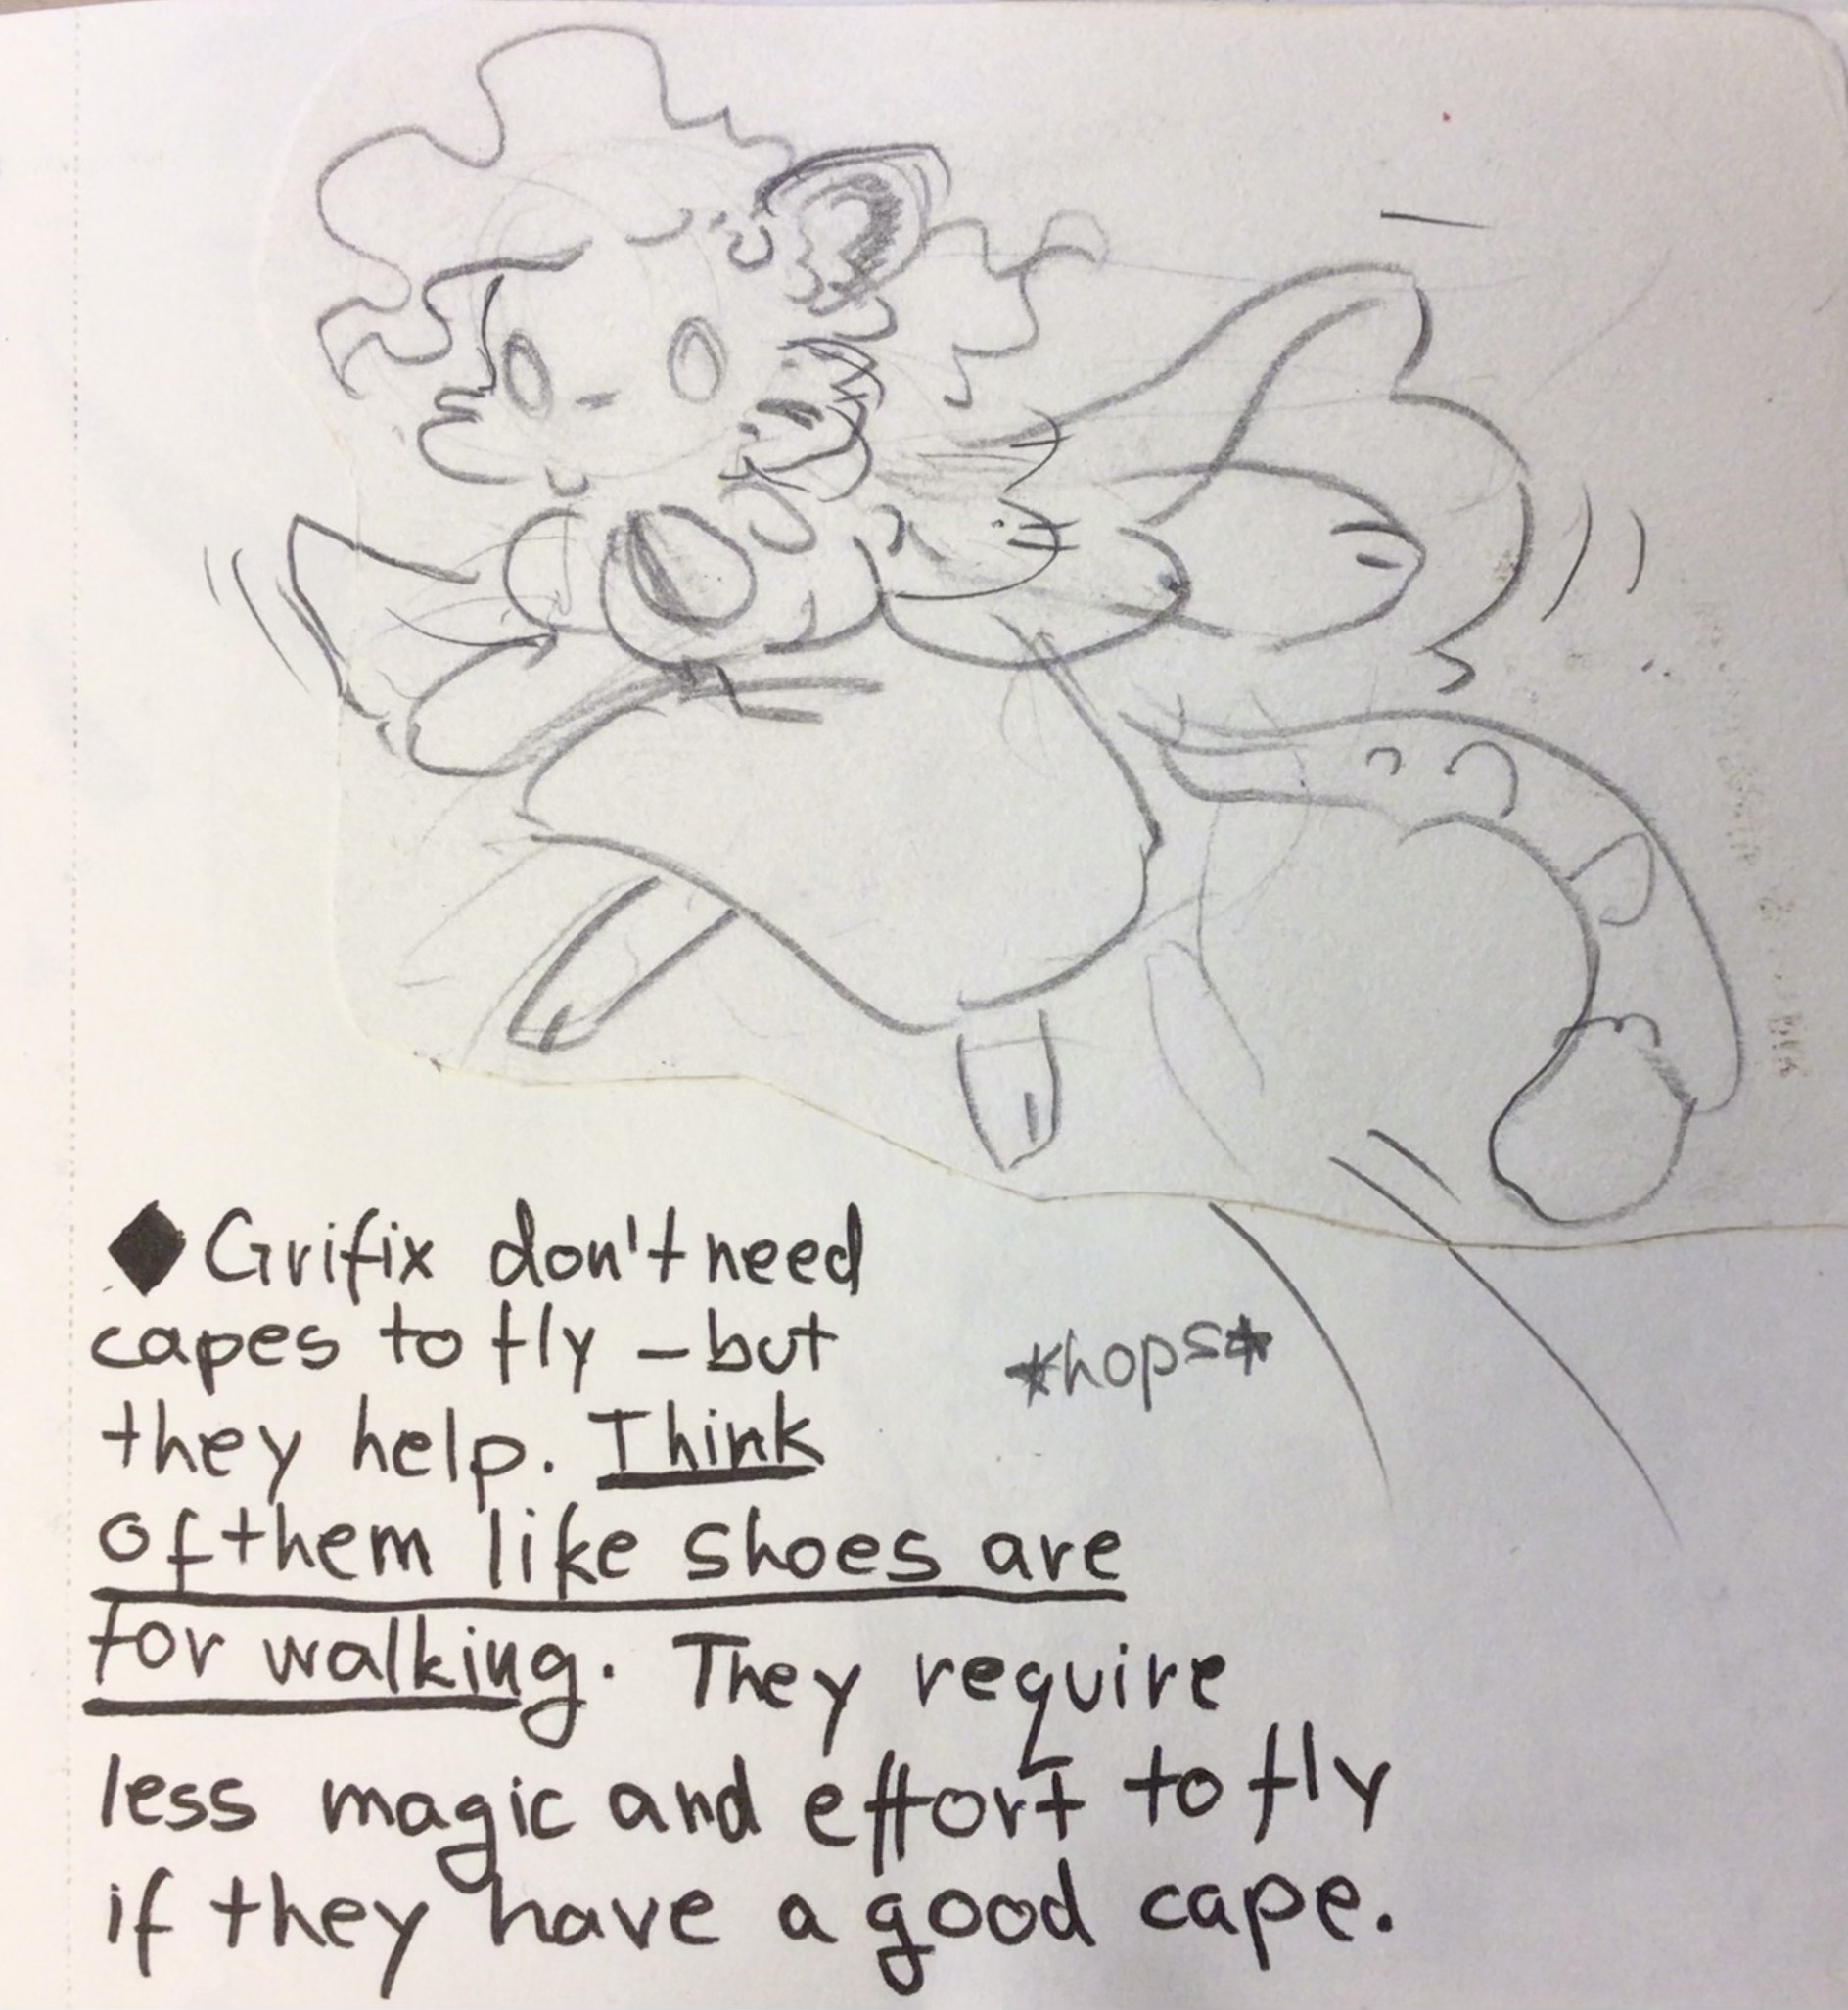 ◆ Grifix don't need
capes to fly – but
they help. Think
of them like shoes are
for walking. They require
less magic and effort to fly
if they have a good cape.
*hops*